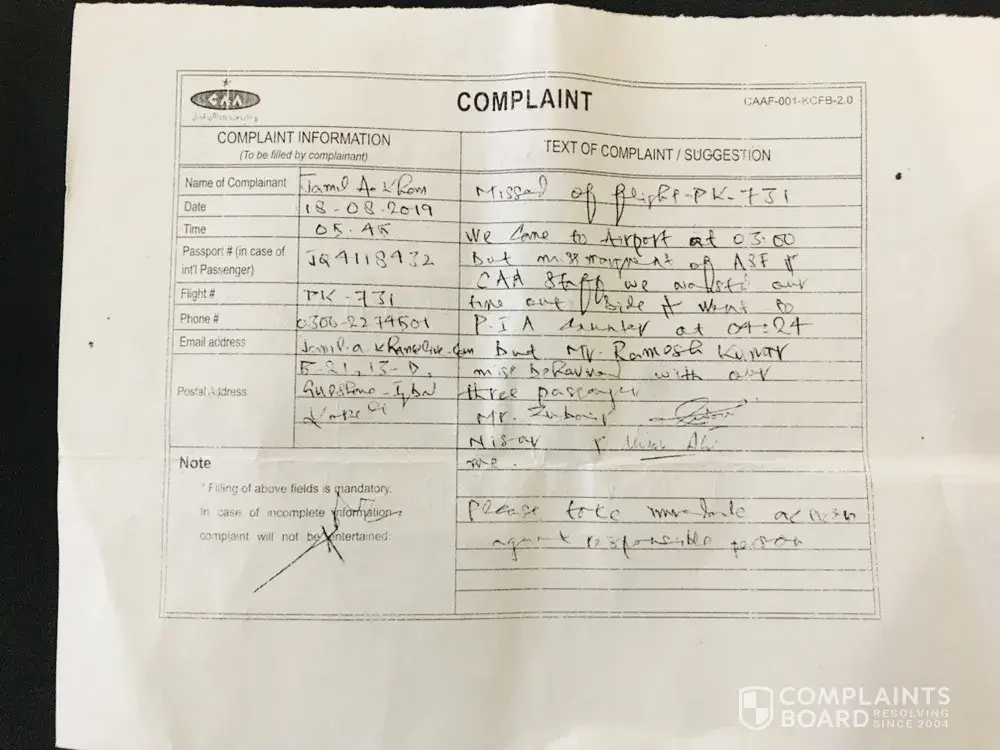 CAA
COMPLAINT
CAAF-001-KCFB-2.0
COMPLAINT INFORMATION
(To be filled by complainant)
TEXT OF COMPLAINT / SUGGESTION
Name of Complainant Jamil A. Khan
Date 18-08-2019
Time 05.45
Passport # (in case of
int'l Passenger)
JQ4118432
Flight # PK-731
Phone # 0300-2274501
Email address
Postal Address
E-21, 13-D,
Missed of flight-PK-731
We come to Airport at 03.00
But of ASF &
CAA Staff we our
time out side & went to
P.I.A at 04:24
But Mr. Ramesh Kumar
mise behaviour with our
three passenger
Mr. Zubair
Nisar &
me.
Please take action
responsible person
Note
* Filling of above fields is mandatory.
In case of incomplete information
complaint will not be entertained
COMPLAINTS
BOARD RESOLVING
SINCE 2004